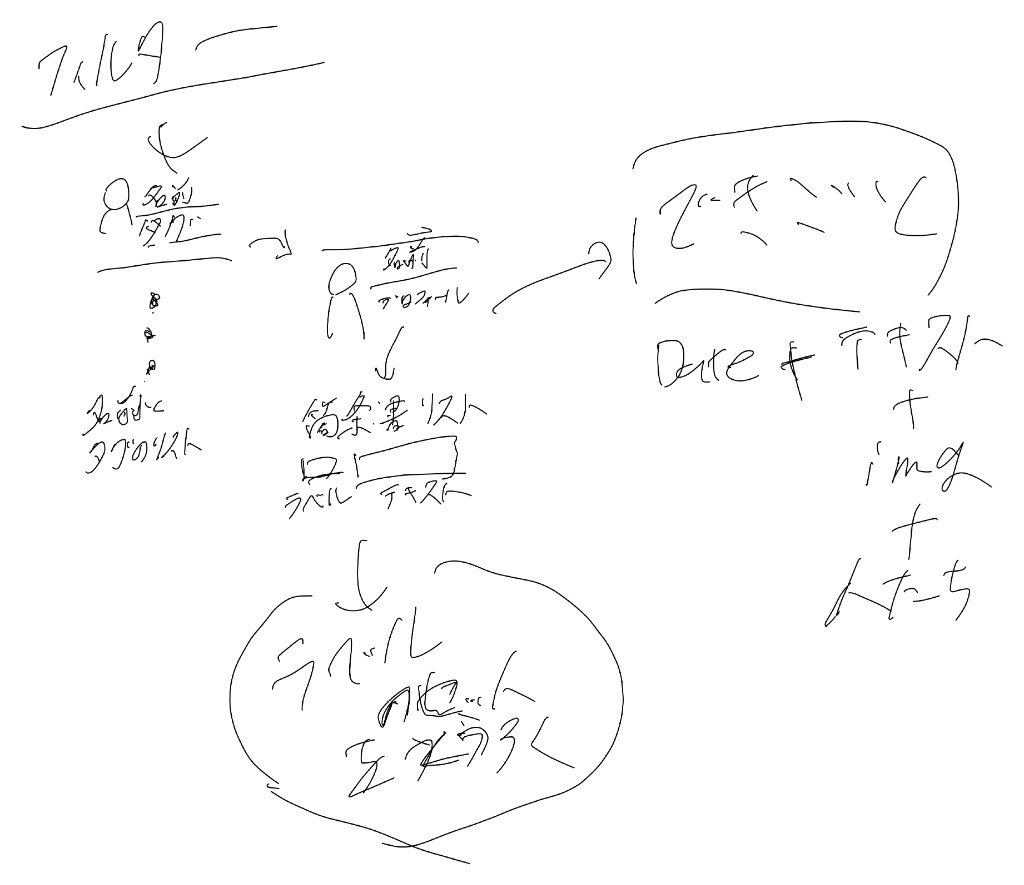 フィルター
名前
タグ
名前と
タグのリスト
名前
プロフィール
箇条書リスト
ラベル テキスト
ラベル
のセット
できごと
Date + テキスト
+
img
+
人たち